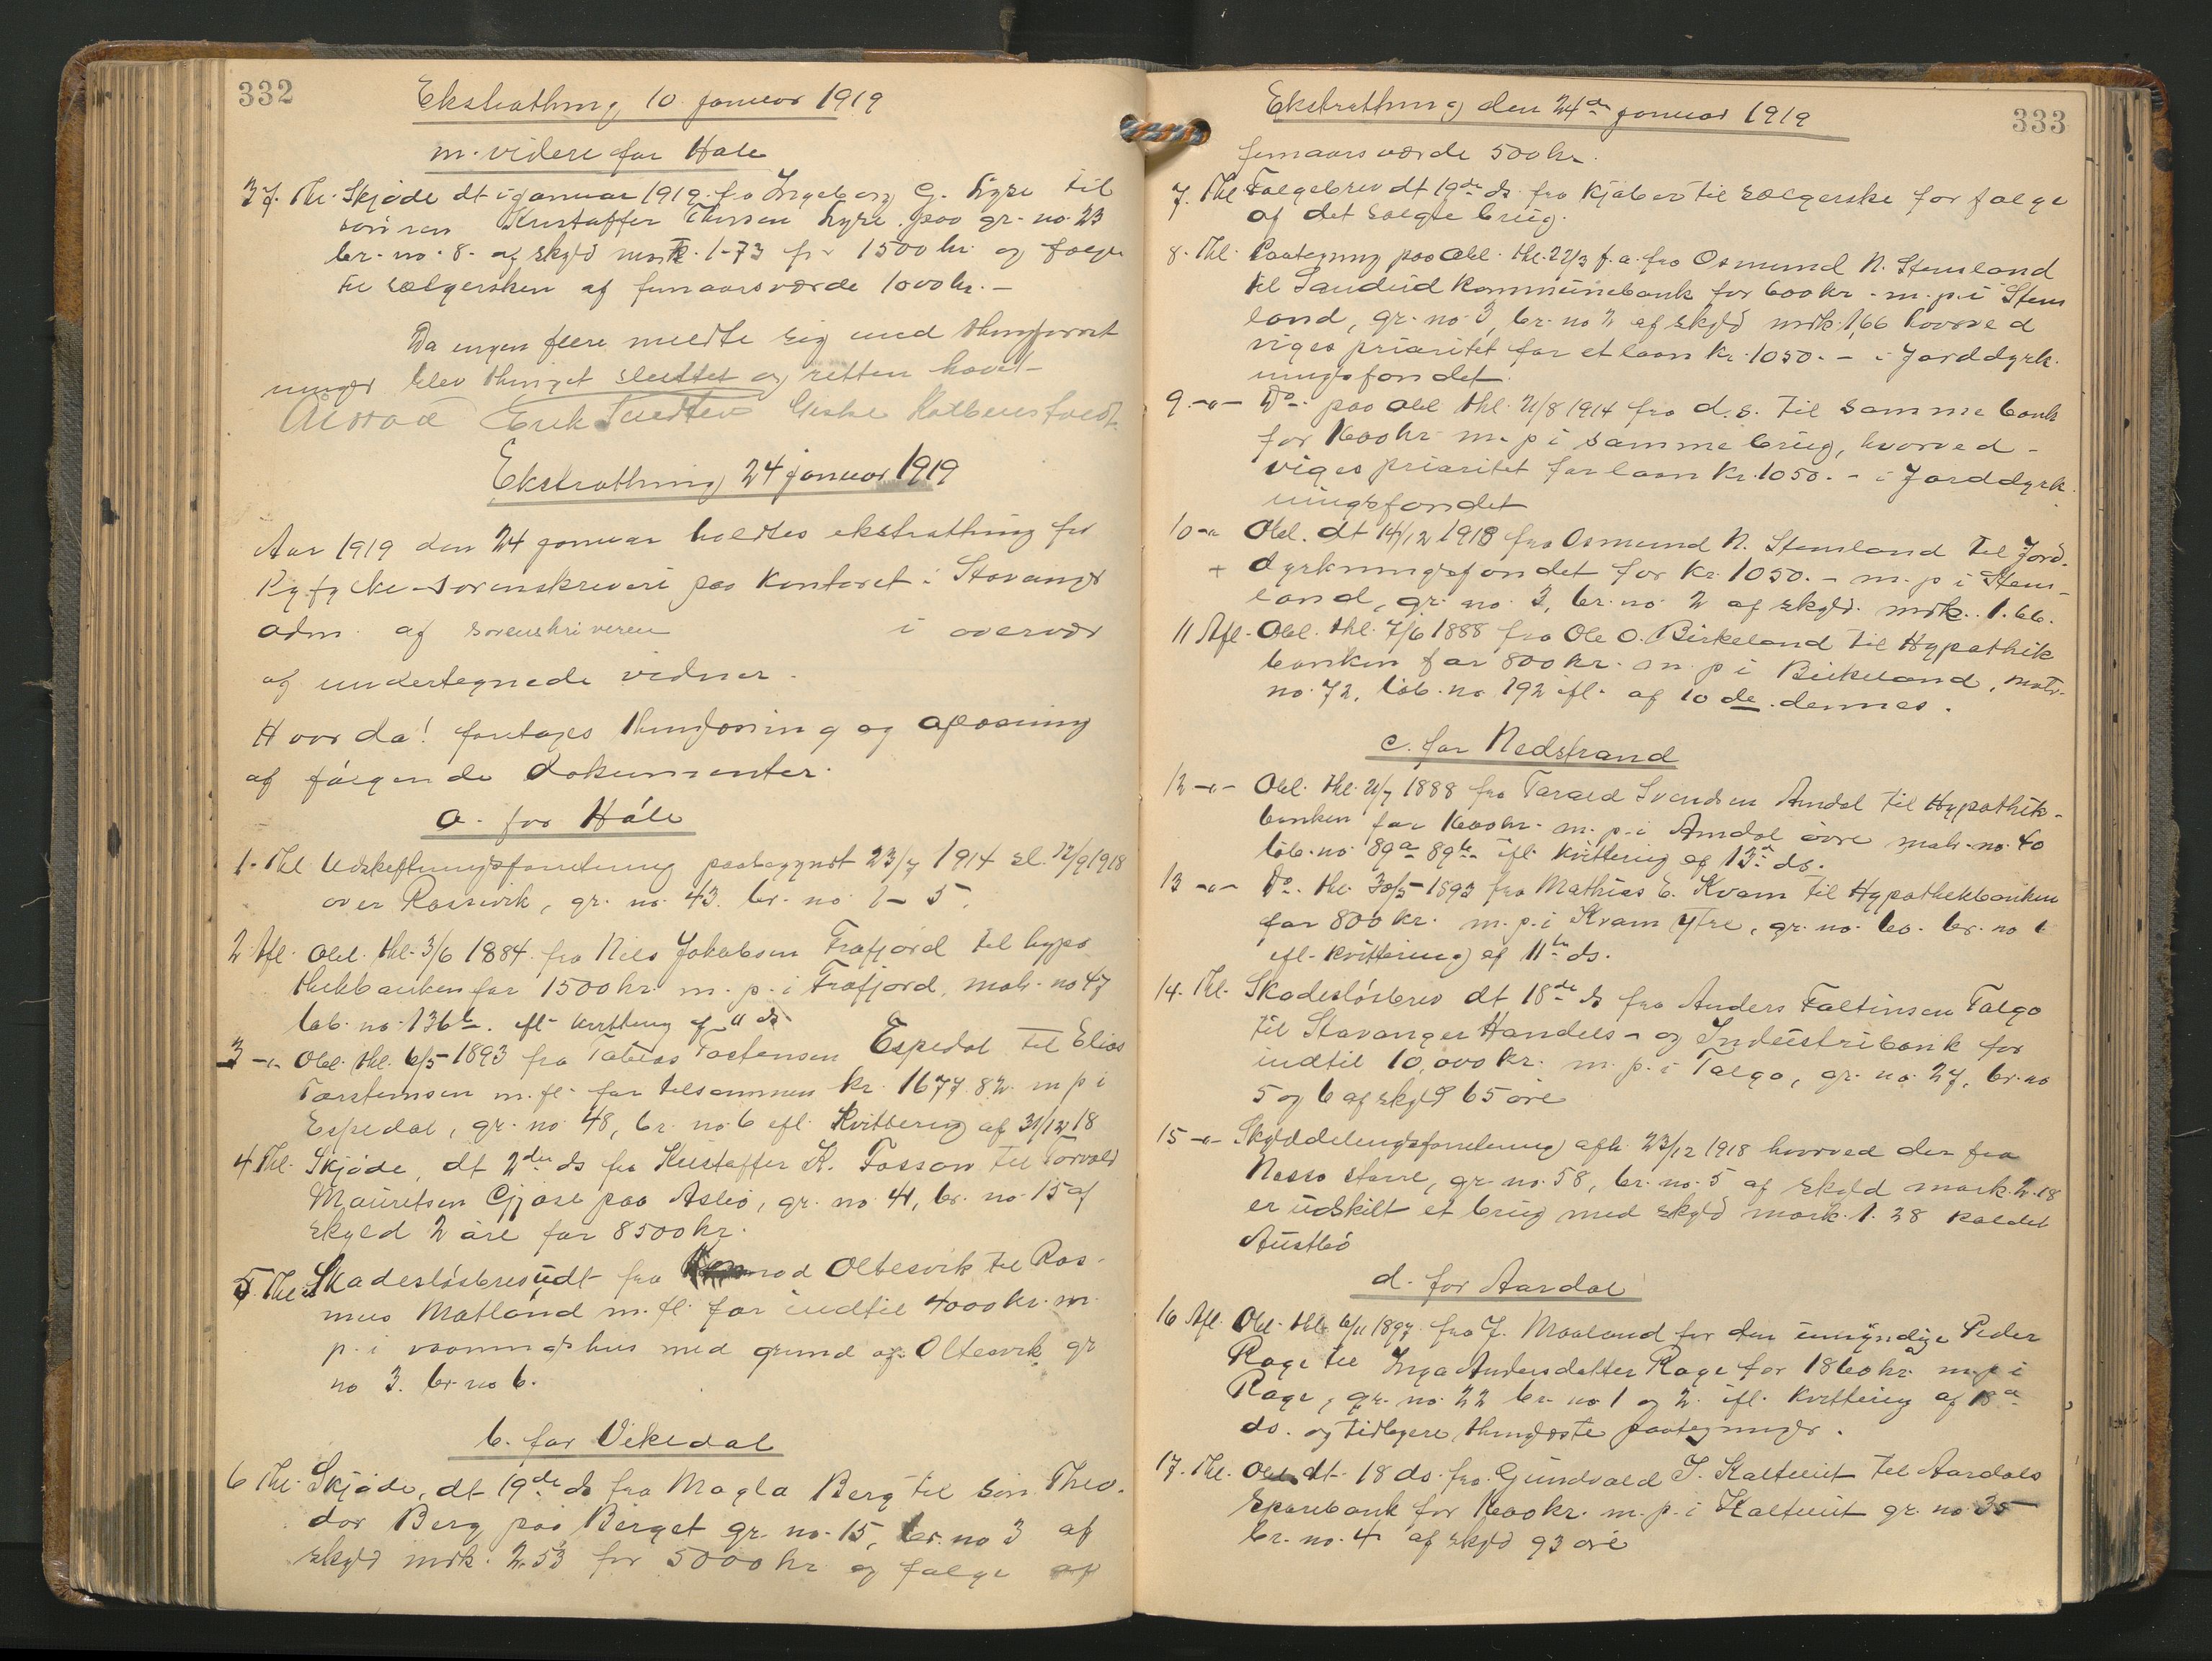 332
Ekstrathing, 10 januar 1919
m. videre for Hole
37. Thl. Skjøde dt i januar 1919 fra Ingeborg G. Lyse til
sønnen Kristaffer Thorsen Lyse paa gr. no 23
br. no. 8. af skyld mark 1-73 for 1500 kr. og følge
til sælgersken af femaarsværde 1000 kr. -
Da ingen flere meldte sig med thinglæsninger
blev thinget sluttet og retten hævet -
Erik
Ekstrathing 24 januar 1919
Aar 1919 den 24 januar holdtes ekstrathing for
Ryfylke sorenskriveri paa kontoret i Stavanger
adm. af sorenskriveren i overvær
af undertegnede vidner.
Hvor da! foretoges thinglæsning og aflæsning
af følgende dokumenter.
a. for Høle
1. Thl Udskiftningsforretning paabegyndt 23/7 1914 sl. 12/9 1918
over Rossevik, gr. no. 43. br. no 1-5.
2 Afl. Obl. thl. 3/6 1884 fra Nils Jakobsen Frafjord til hypo
thekbanken for 1500 kr. m. p. i Frafjord, matr. no 47
løb. no. 136b. ifl. kvittering af 11 ds.
3 -"- Obl. thl. 6/5 1893 fra Tobias Tostensen Espedal til Elias
Torstensen m. fl. for tilsammen kr. 1677.82 m p i
Espedal, gr. no 48, br. no 6 ifl. Kvittering af 31/12 18
4 Thl. Skjøde, dt 2den ds fra Kristaffer K. Fossan til Torvald
Mauritsen Gjøse paa Asbø, gr. no 41, br. no 15 af
skyld 2 øre for 8500 kr.
5. Thl Skadesløsbrev udt fra Oltesvik til Ras-
mus Matland m. fl. for indtil 4000 kr. m.
p. i vaaningshus med grund af Oltesvik gr
no 3. br no 6.
b. for Vikedal
6 Thl. Skjøde, dt 19de ds fra Magla Berg til søn Theo-
dor Berg paa Berget gr. no. 15, br. no 3 af
skyld mrk. 2.53 for 5000 kr og følge af
333
Ekstrathing den 24de januar 1919
femaarsværde 500 kr.
7. Thl Følgebrev dt 19de ds. fra kjøber til sælgerske for følge
af det solgte brug.
8. Thl. Paategning paa Obl. thl. 22/3 f. a. fra Osmund N. Stensland
til Sandeid kommunebank for 600 kr. m. p. i Stens
land, gr. no 3, br. no 2 af skyld mrk. 1,66 hvorved
viges prioritet for et laan kr. 1050. - i Jorddyrk-
ningsfondet.
9. -"- Do. paa obl thl. 21/8 1914 fra d. s. til samme bank
for 1600 kr m. p i samme brug, hvorved -
viges prioritet for laan kr. 1050. - i Jorddyrk-
ningsfondet
10 -"- Obl. dt 14/12 1918 fra Osmund N. Stensland til Jord-
+ dyrkningsfondet for kr. 1050. - m. p i Stens-
land, gr. no 3, br. no 2 af skyld. mrk. 1.66.
11 Afl. Obl. thl. 7/6 1888 fra Ole O. Birkeland til Hypothek
banken for 800 kr. m. p i Birkeland, matr.
no. 72, løb. no 192 ifl. af 10 de dennes.
c. for Nedstrand
12 -"- Obl. thl. 21/7 1888 fra Tarald Svendsen Amdal til Hypothek-
banken for 1600 kr. m. p. i Amdal øvre matr. no. 40
løb. no 89a 89b ifl kvittering af 13d ds.
13 -"- Do. thl. 30/5 1893 fra Mathias E. Kvam til Hypothekbanken
for 800 kr. m. p. i Kvam ytre, gr. no. 60. br. no 1
ifl. kvittering af 11te ds.
14. Thl. Skadesløsbrev dt 18de ds fra Anders Faltinsen Talgo
til Stavanger Handels- og Industribank for
indtil 10,000 kr. m. p. i Talgo, gr. no. 27, br. no
5 og 6 af skyld 65 øre
15 -"- Skylddelingsforretning afh. 23/12 1918 hvorved der fra
Nesse store, gr. no. 58, br. no. 5 af skyld mark. 2.18
er udskilt et brug med skyld mark. 1. 28 kaldet
Austbø
d. for Aardal
16 Afl. Obl. thl 6/11 1897 fra J. Maaland for den umyndige Peder
Rage til Inga Andersdatter Rage for 1860 kr. m. p i
Rage, gr. no. 22 br. no 1 og 2. ifl. kvittering af 18de
ds. og tidligere thinglæste paategninger.
17. Thl. Obl. dt. 18 ds. fra Gundvald I. Kaltveit til Aardals
Sparebank for 1600 kr. m. p. i Kaltveit gr. no 35
br. no. 4 af skyld 93 øre